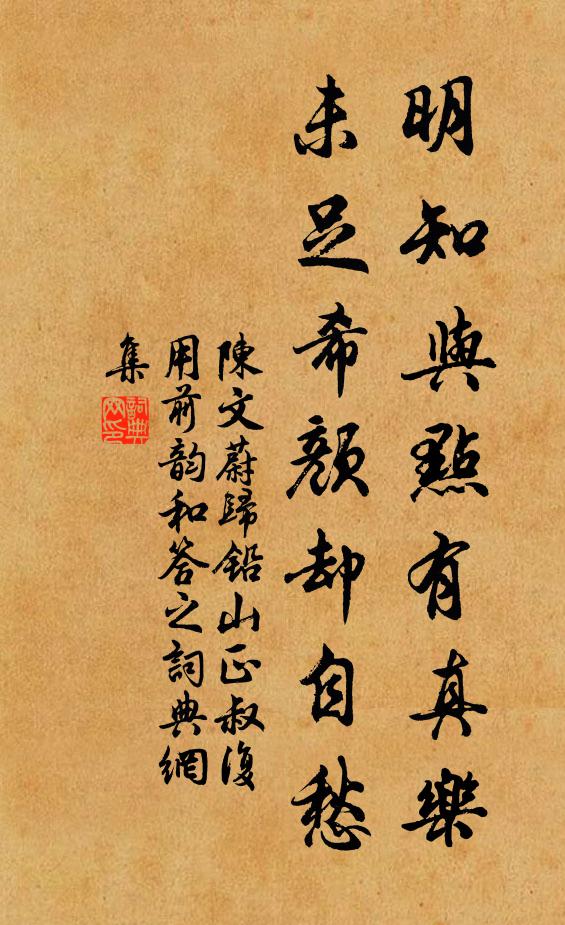 明知與點有真樂
未足希顏却自愁
陳文蔚歸鉛山正叔復
用前韵和答之詞典網
集
詞典網印